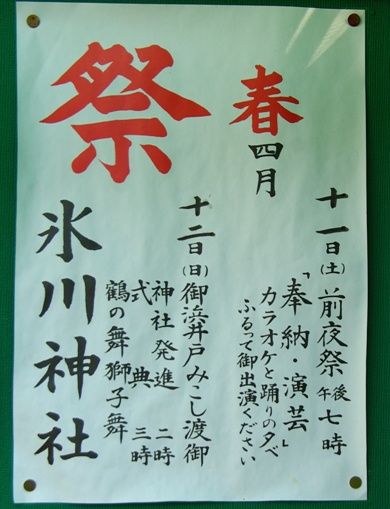 春
四月
祭
十一日(土)前夜祭午後七時
「奉納・演芸」
カラオケと踊りの夕べ
ふるって御出演ください
十二日(日)御浜井戸みこし渡御
神社発進 二時
式典 三時
鶴の舞獅子舞
氷川神社